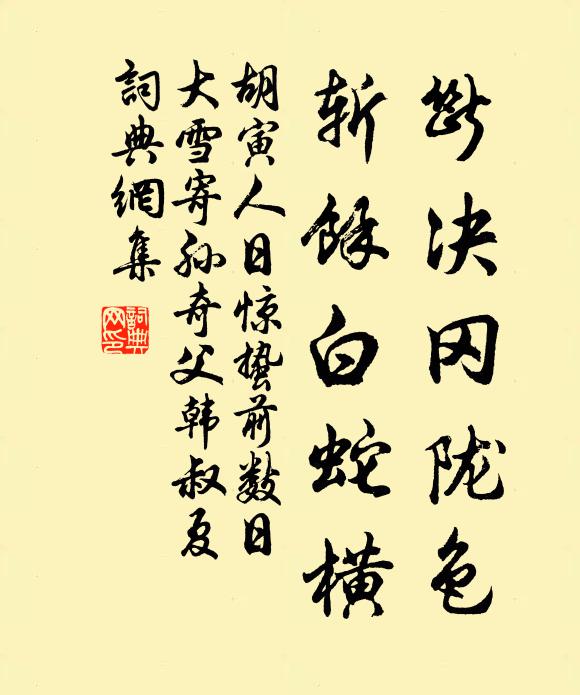 斷决冈陇色
斩餘白蛇横
胡寅人日惊蛰前数日
大雪寄孙奇父韩叔夏
詞典網集
詞典网印